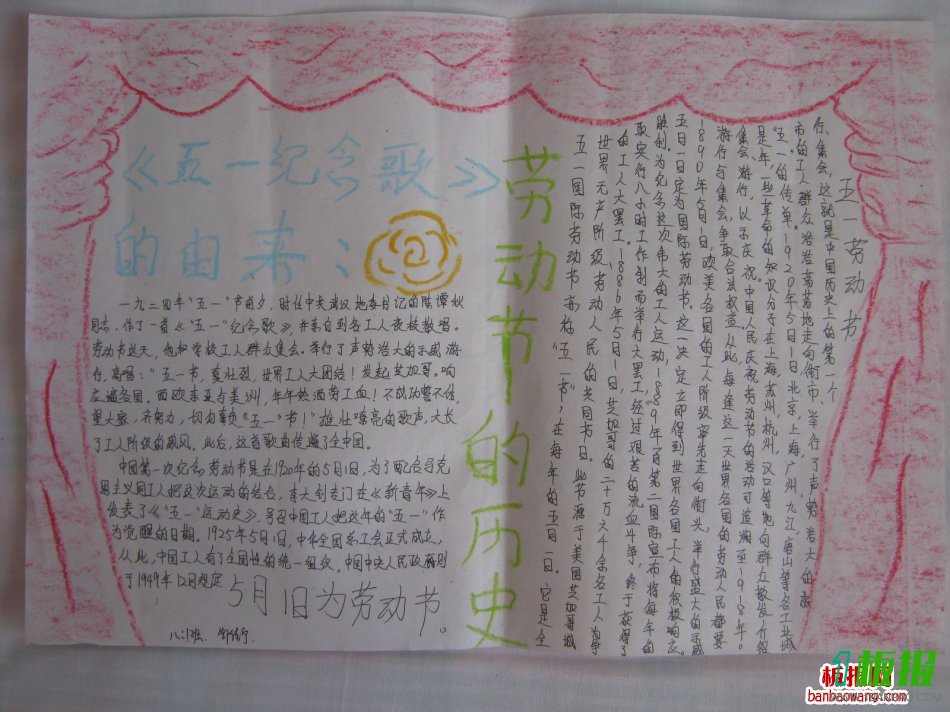 《五一纪念歌》
的由来：
一九二四年"五一"节前夕，时任中共武汉地委书记的陈潭秋
同志，作了一首《"五一"纪念歌》，并亲自到各工人夜校教唱。
劳动节这天，他和学校工人群众集会。举行了声势浩大的示威游
行，高唱："五一节，真壮烈，世界工人大团结！发起芝加哥。响
应遍各国。西欧东亚与美洲，年年热洒劳工血！不成功誓不休，
望大家，齐努力，切勿辜负《五一"节！"雄壮嘹亮的歌声，大长
了工人阶级的威风。此后，这首歌曲传遍了全中国。
中国第一次纪念劳动节是在1920年的5月1日，为了配合马克
思主义同工人把这次运动的结合，李大钊专门在《新青年》上
发表了《"五一"运动史》，号召中国工人把这年的"五一"作
为觉醒的日期，1925年5月1日，中华全国总工会正式成立，
从此，中国工人有了全国性的统一组织。中国中央人民政府则
于1949年12月规定
5月1日为劳动节。
劳动节的历史
五一劳动节
五一国际劳动节亦称"五一节"，在每年的五月一日、它是全
世界无产阶级劳动人民的共同节日。此节源于美国芝加哥城
的工人大罢工。1886年5月1日，芝加哥的二十一万六千余名工人为争
取实行八小时工作制而举行大罢工，经过艰苦的流血斗争，终于获得了
胜利。为纪念这次伟大的工人运动，1889年7月第二国际宣布将每年的
五月一日定为国际劳动节。这一决定立即得到世界各国工人的积极响应。
1890年5月1日，欧美各国的工人阶级率先走向街头，举行盛大的示威
游行与集会，争取合法权益。从此，每逢这一天世界各国的劳动人民都要
集会、游行，以示庆祝。中国人民庆祝劳动节的活动可追溯至1918年。
是年，一些革命的知识分子在上海，苏州，杭州，汉口等地向群众散发介绍
"五一"的传单。1920年5月1日，北京，上海，广州，九江，唐山等各工业城
市的工人群众浩浩荡荡地走向街市、举行了声势浩大的游
行、集会，这就是中国历史上的第一个
板报网
banbaowang.com
板报